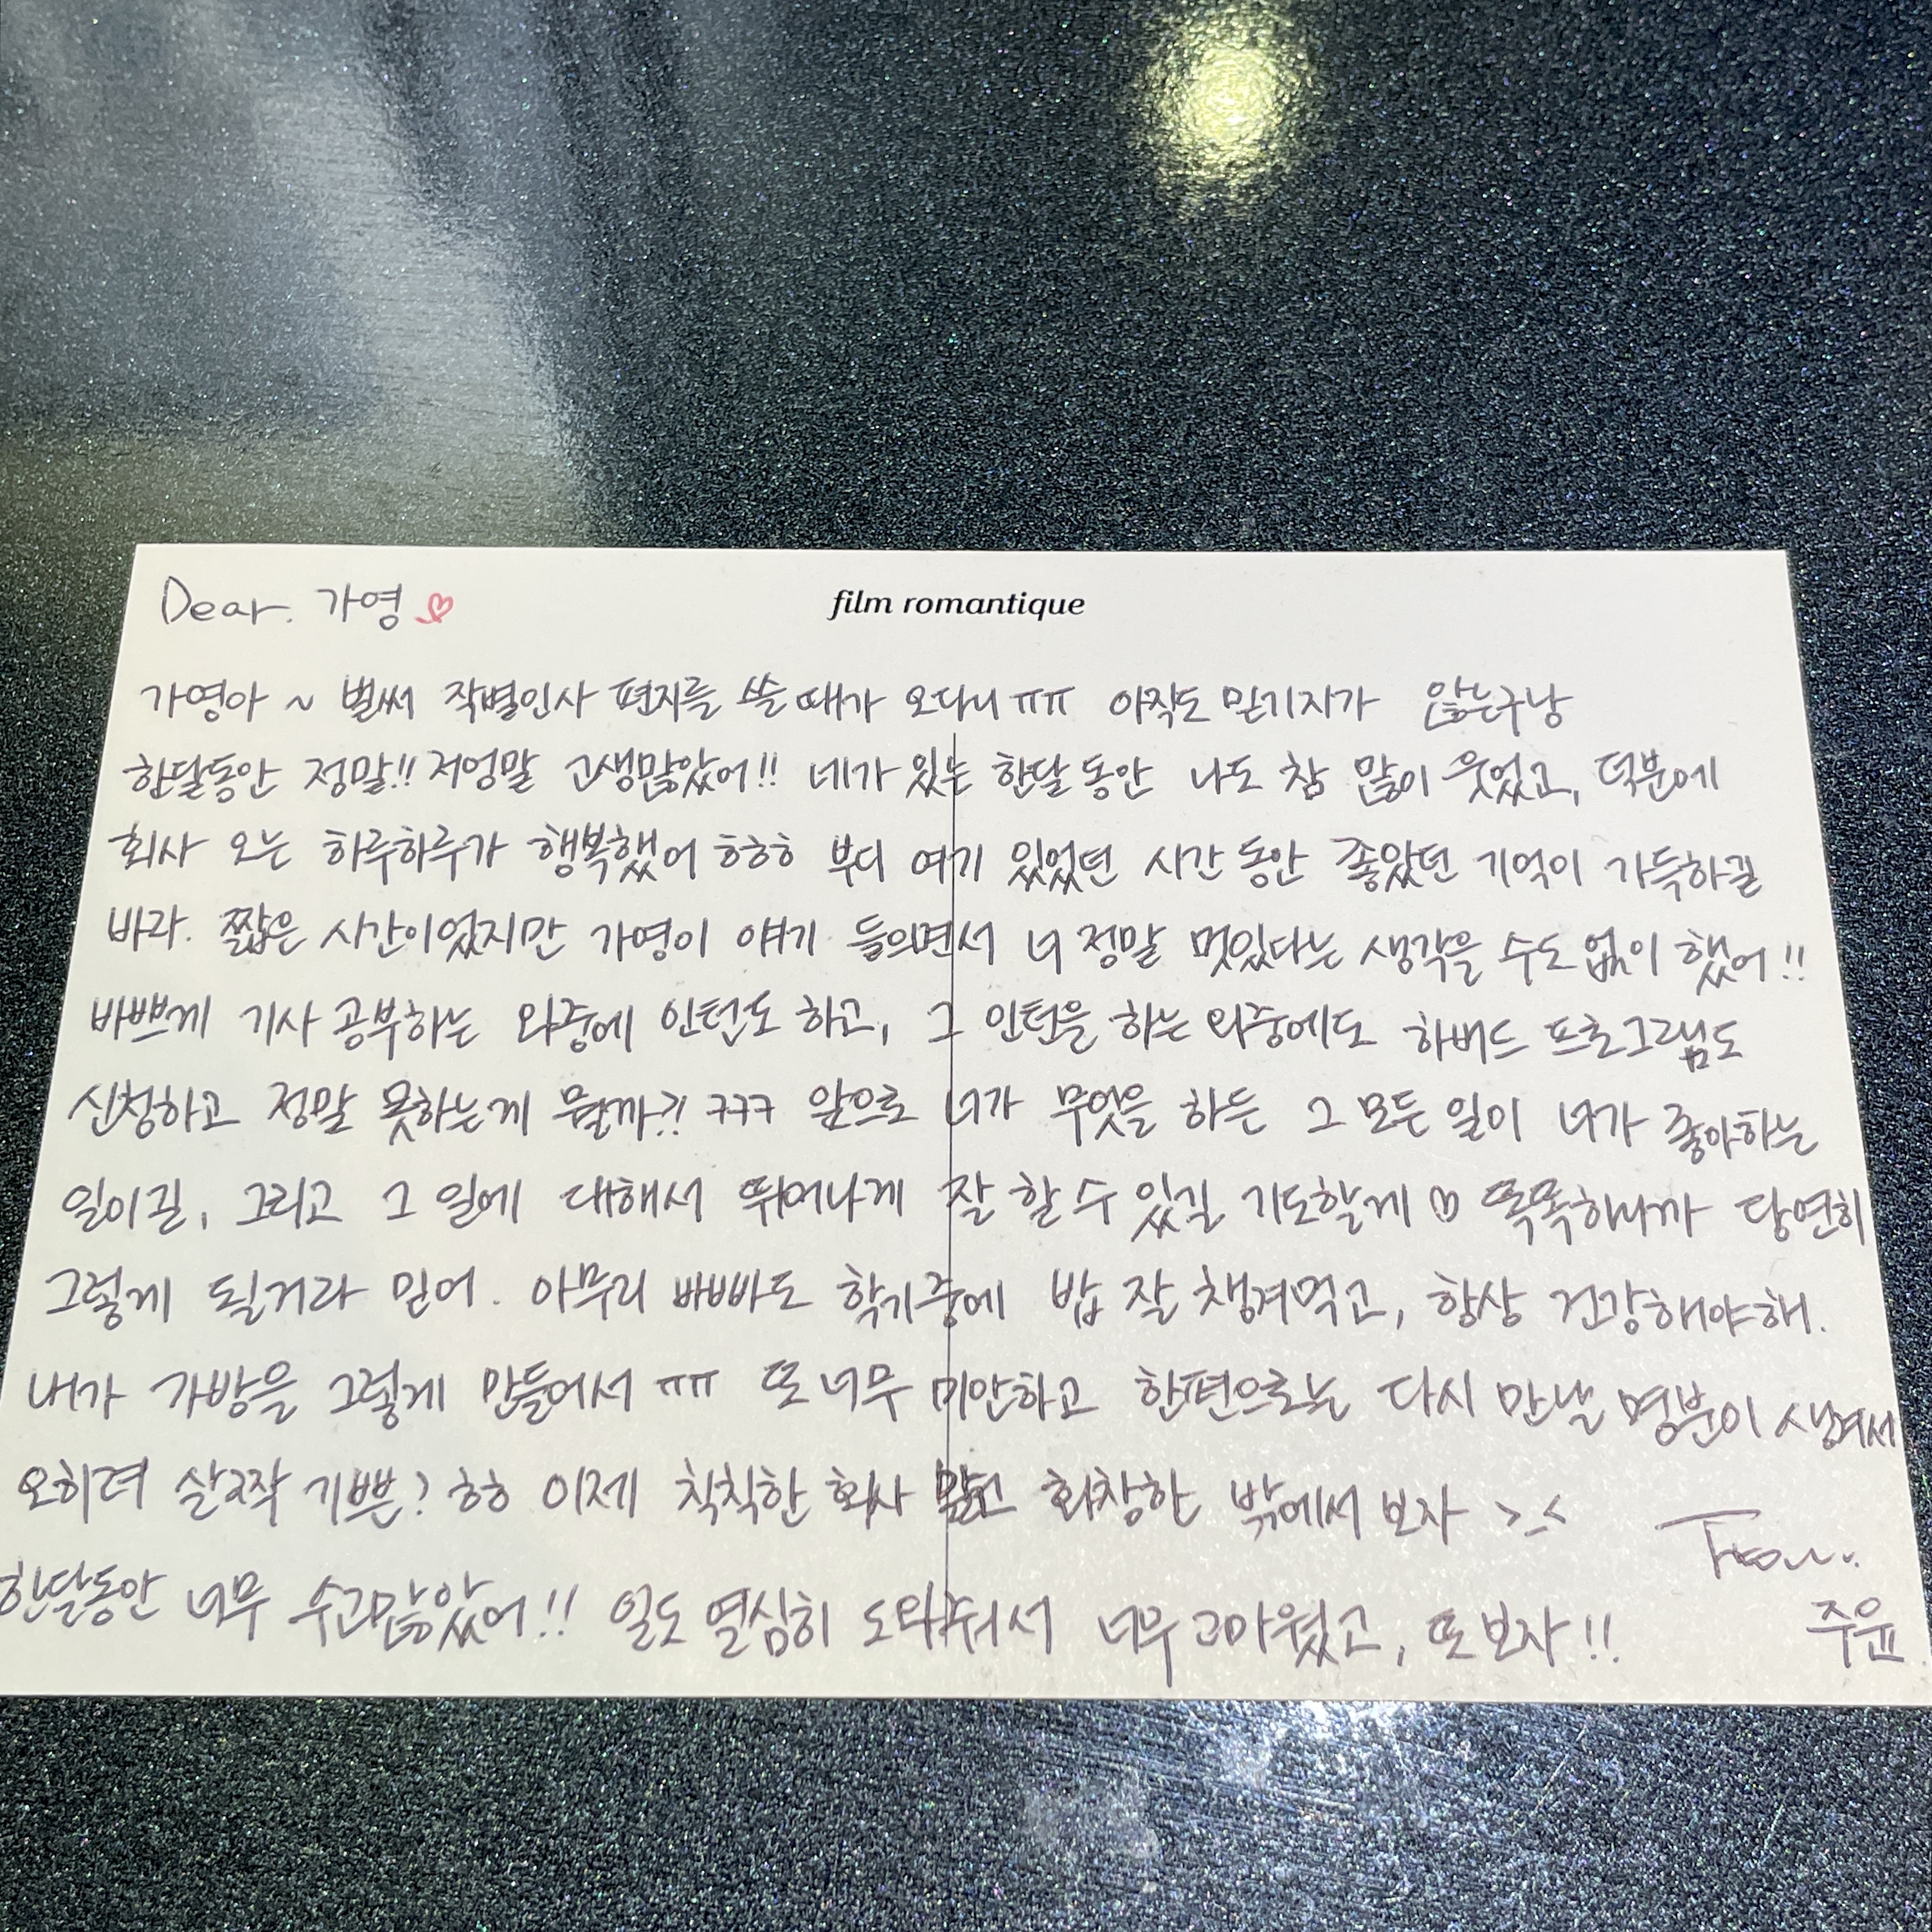 Dear. 가영 ♡
film romantique
가영아 ~ 벌써 작별인사 편지를 쓸 때가 오다니 ㅠㅠ 아직도 믿기지가 않는구낭
한달동안 정말!! 저엉말 고생많았어!! 네가 있는 한달 동안 나도 참 많이 웃었고, 덕분에
회사 오는 하루하루가 행복했어 ㅎㅎㅎ 부디 여기 있었던 시간 동안 좋았던 기억이 가득하길
바라. 짧은 시간이었지만 가영이 얘기 들으면서 너 정말 멋있다는 생각을 수도 없이 했어!!
바쁘게 기사 공부하는 와중에 인턴도 하고, 그 인턴을 하는 와중에도 하버드 프로그램도
신청하고 정말 못하는게 뭘까?! ㅋㅋㅋ 앞으로 너가 무엇을 하든 그 모든 일이 너가 좋아하는
일이길, 그리고 그 일에 대해서 뛰어나게 잘 할 수 있길 기도할게 ♡ 똑똑하니까 당연히
그렇게 될거라 믿어. 아무리 바빠도 학기중에 밥 잘 챙겨먹고, 항상 건강해야해.
내가 가방을 그렇게 만들어서 ㅠㅠ 또 너무 미안하고 한편으로는 다시 만날 명분이 생겨서
오히려 살짝 기쁜? ㅎㅎ 이제 칙칙한 회사 말고 화창한 밖에서 보자 >_<
한달동안 너무 수고많았어!! 일도 열심히 도와줘서 너무 고마웠고, 또 보자!!
From.
주윤